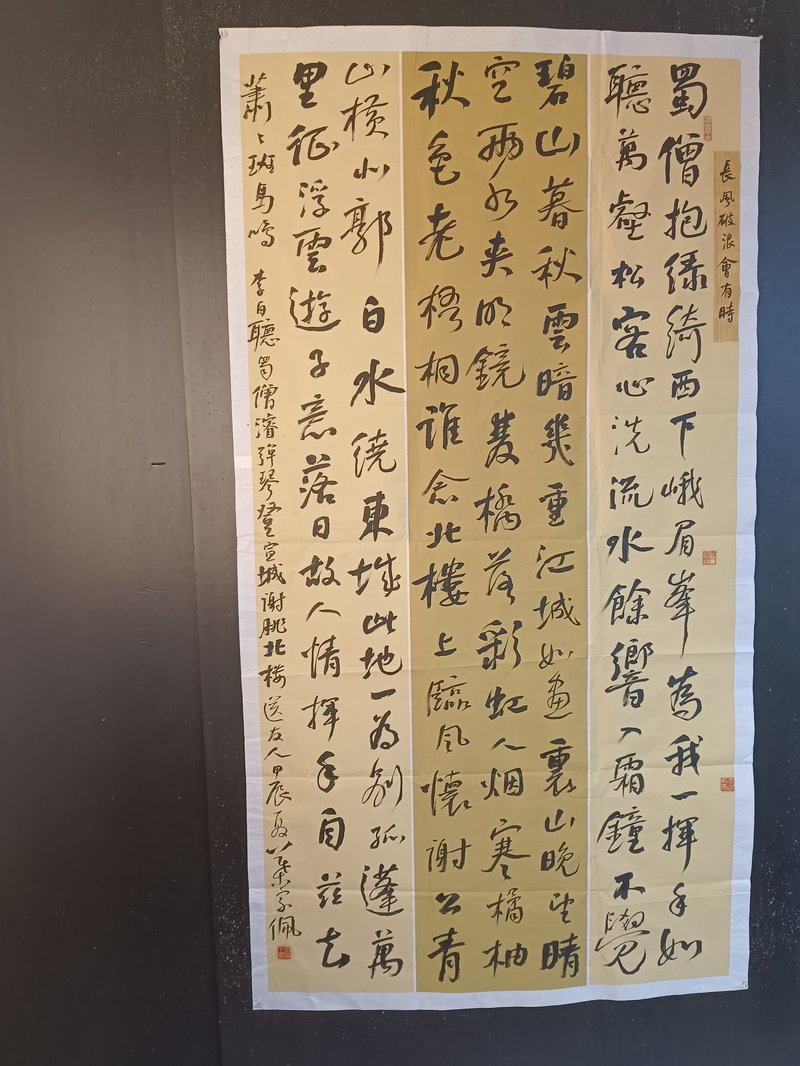 長風破浪會有時
蜀僧抱綠綺西下峨眉峯為我一揮手如
聽萬壑松客心洗流水餘響入霜鐘不覺
碧山暮秋雲暗幾重江城如畫裏山晚望晴
空兩水夾明鏡雙橋落彩虹人烟寒橘柚
秋色老梧桐誰念北樓上臨風懷謝公青
山橫北郭白水繞東城此地一為別孤蓬萬
里征浮雲遊子意落日故人情揮手自茲去
蕭々班馬鳴 李白聽蜀僧濬彈琴登宣城謝朓北楼送友人甲辰夏葉家佩